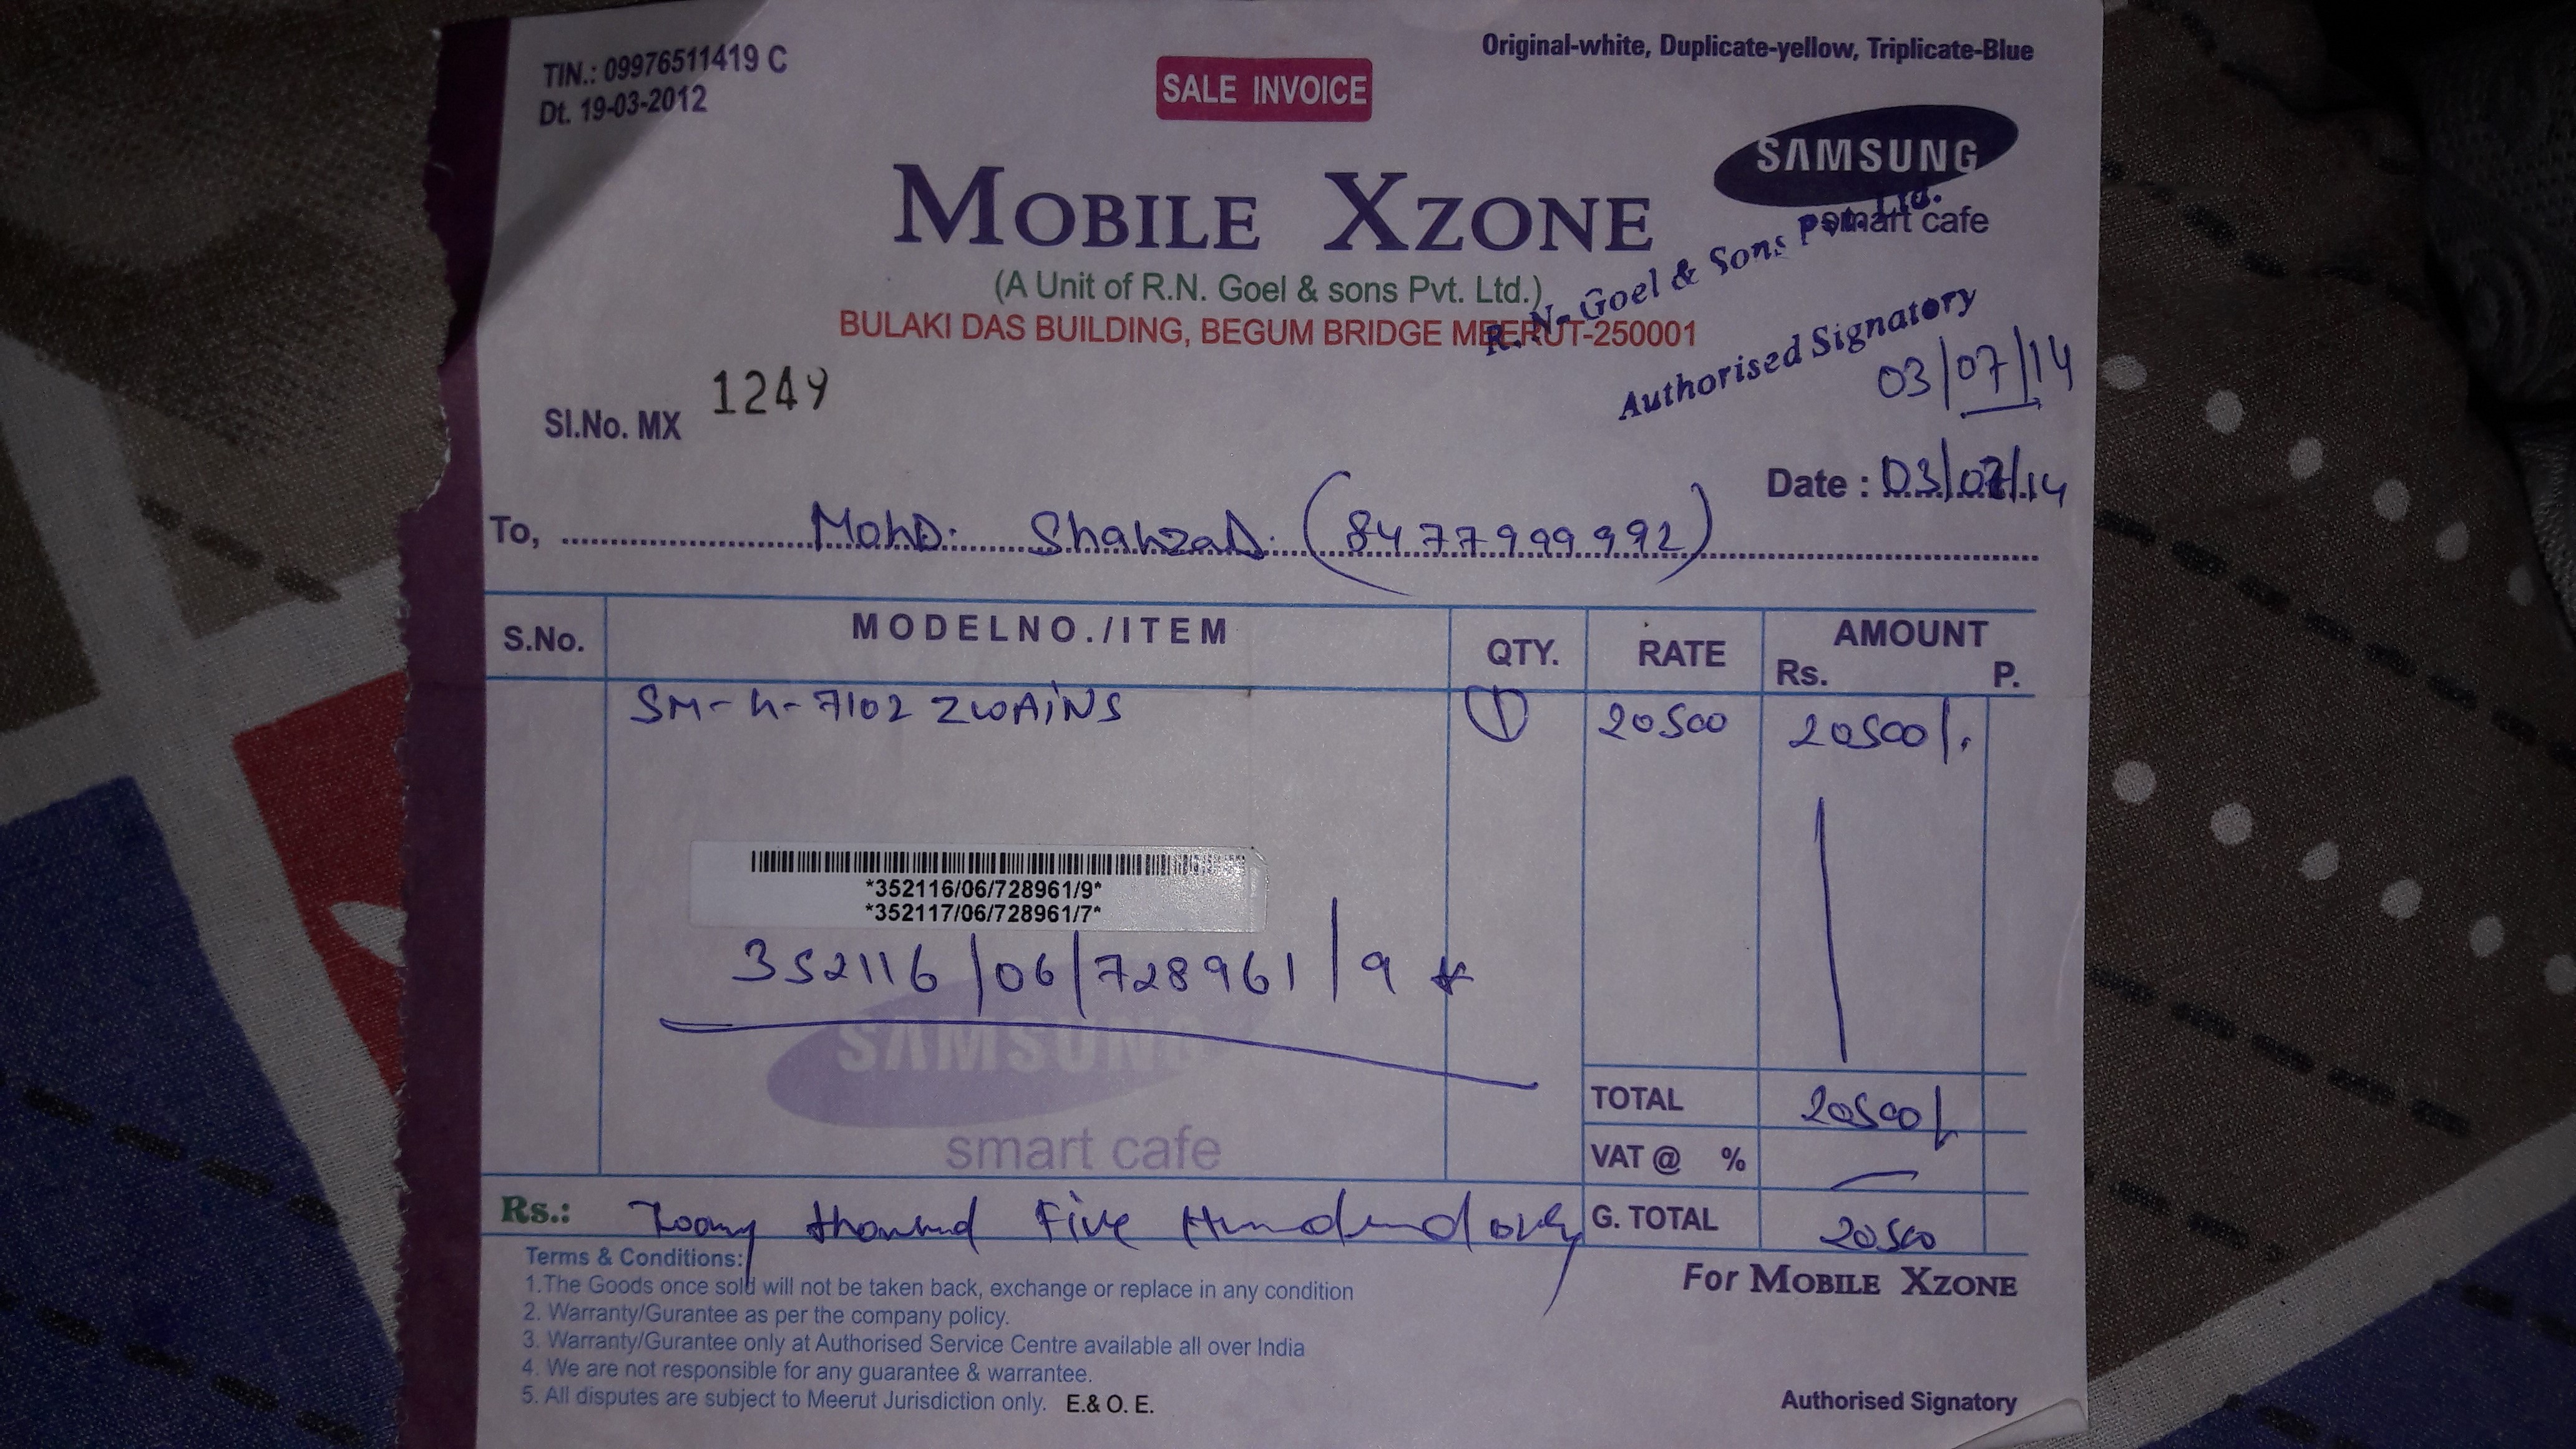 TIN.: 09976511419 C
Dt. 19-03-2012
SALE INVOICE
Original-white, Duplicate-yellow, Triplicate-Blue
SAMSUNG
smart cafe
MOBILE XZONE
(A Unit of R.N. Goel & sons Pvt. Ltd.)
BULAKI DAS BUILDING, BEGUM BRIDGE MEERUT-250001
R. N. Goel & Sons Pvt. Ltd.
Authorised Signatory
03/07/14
Sl.No. MX 1249
Date : 03/07/14
To, Mohd. Shahzad. (8477999992)
S.No. MODELNO./ITEM QTY. RATE AMOUNT
Rs. P.
SM-G-7102 ZWAINS 1 20500 20500/.
*352116/06/728961/9*
*352117/06/728961/7*
352116/06/728961/9 *
SAMSUNG
smart cafe
TOTAL 20500/-
VAT @ %
Rs.: Twenty thousand Five Hundred only G. TOTAL 20500
Terms & Conditions:
1.The Goods once sold will not be taken back, exchange or replace in any condition
2. Warranty/Gurantee as per the company policy.
3. Warranty/Gurantee only at Authorised Service Centre available all over India
4. We are not responsible for any guarantee & warrantee.
5. All disputes are subject to Meerut Jurisdiction only. E.& O. E.
For MOBILE XZONE
Authorised Signatory